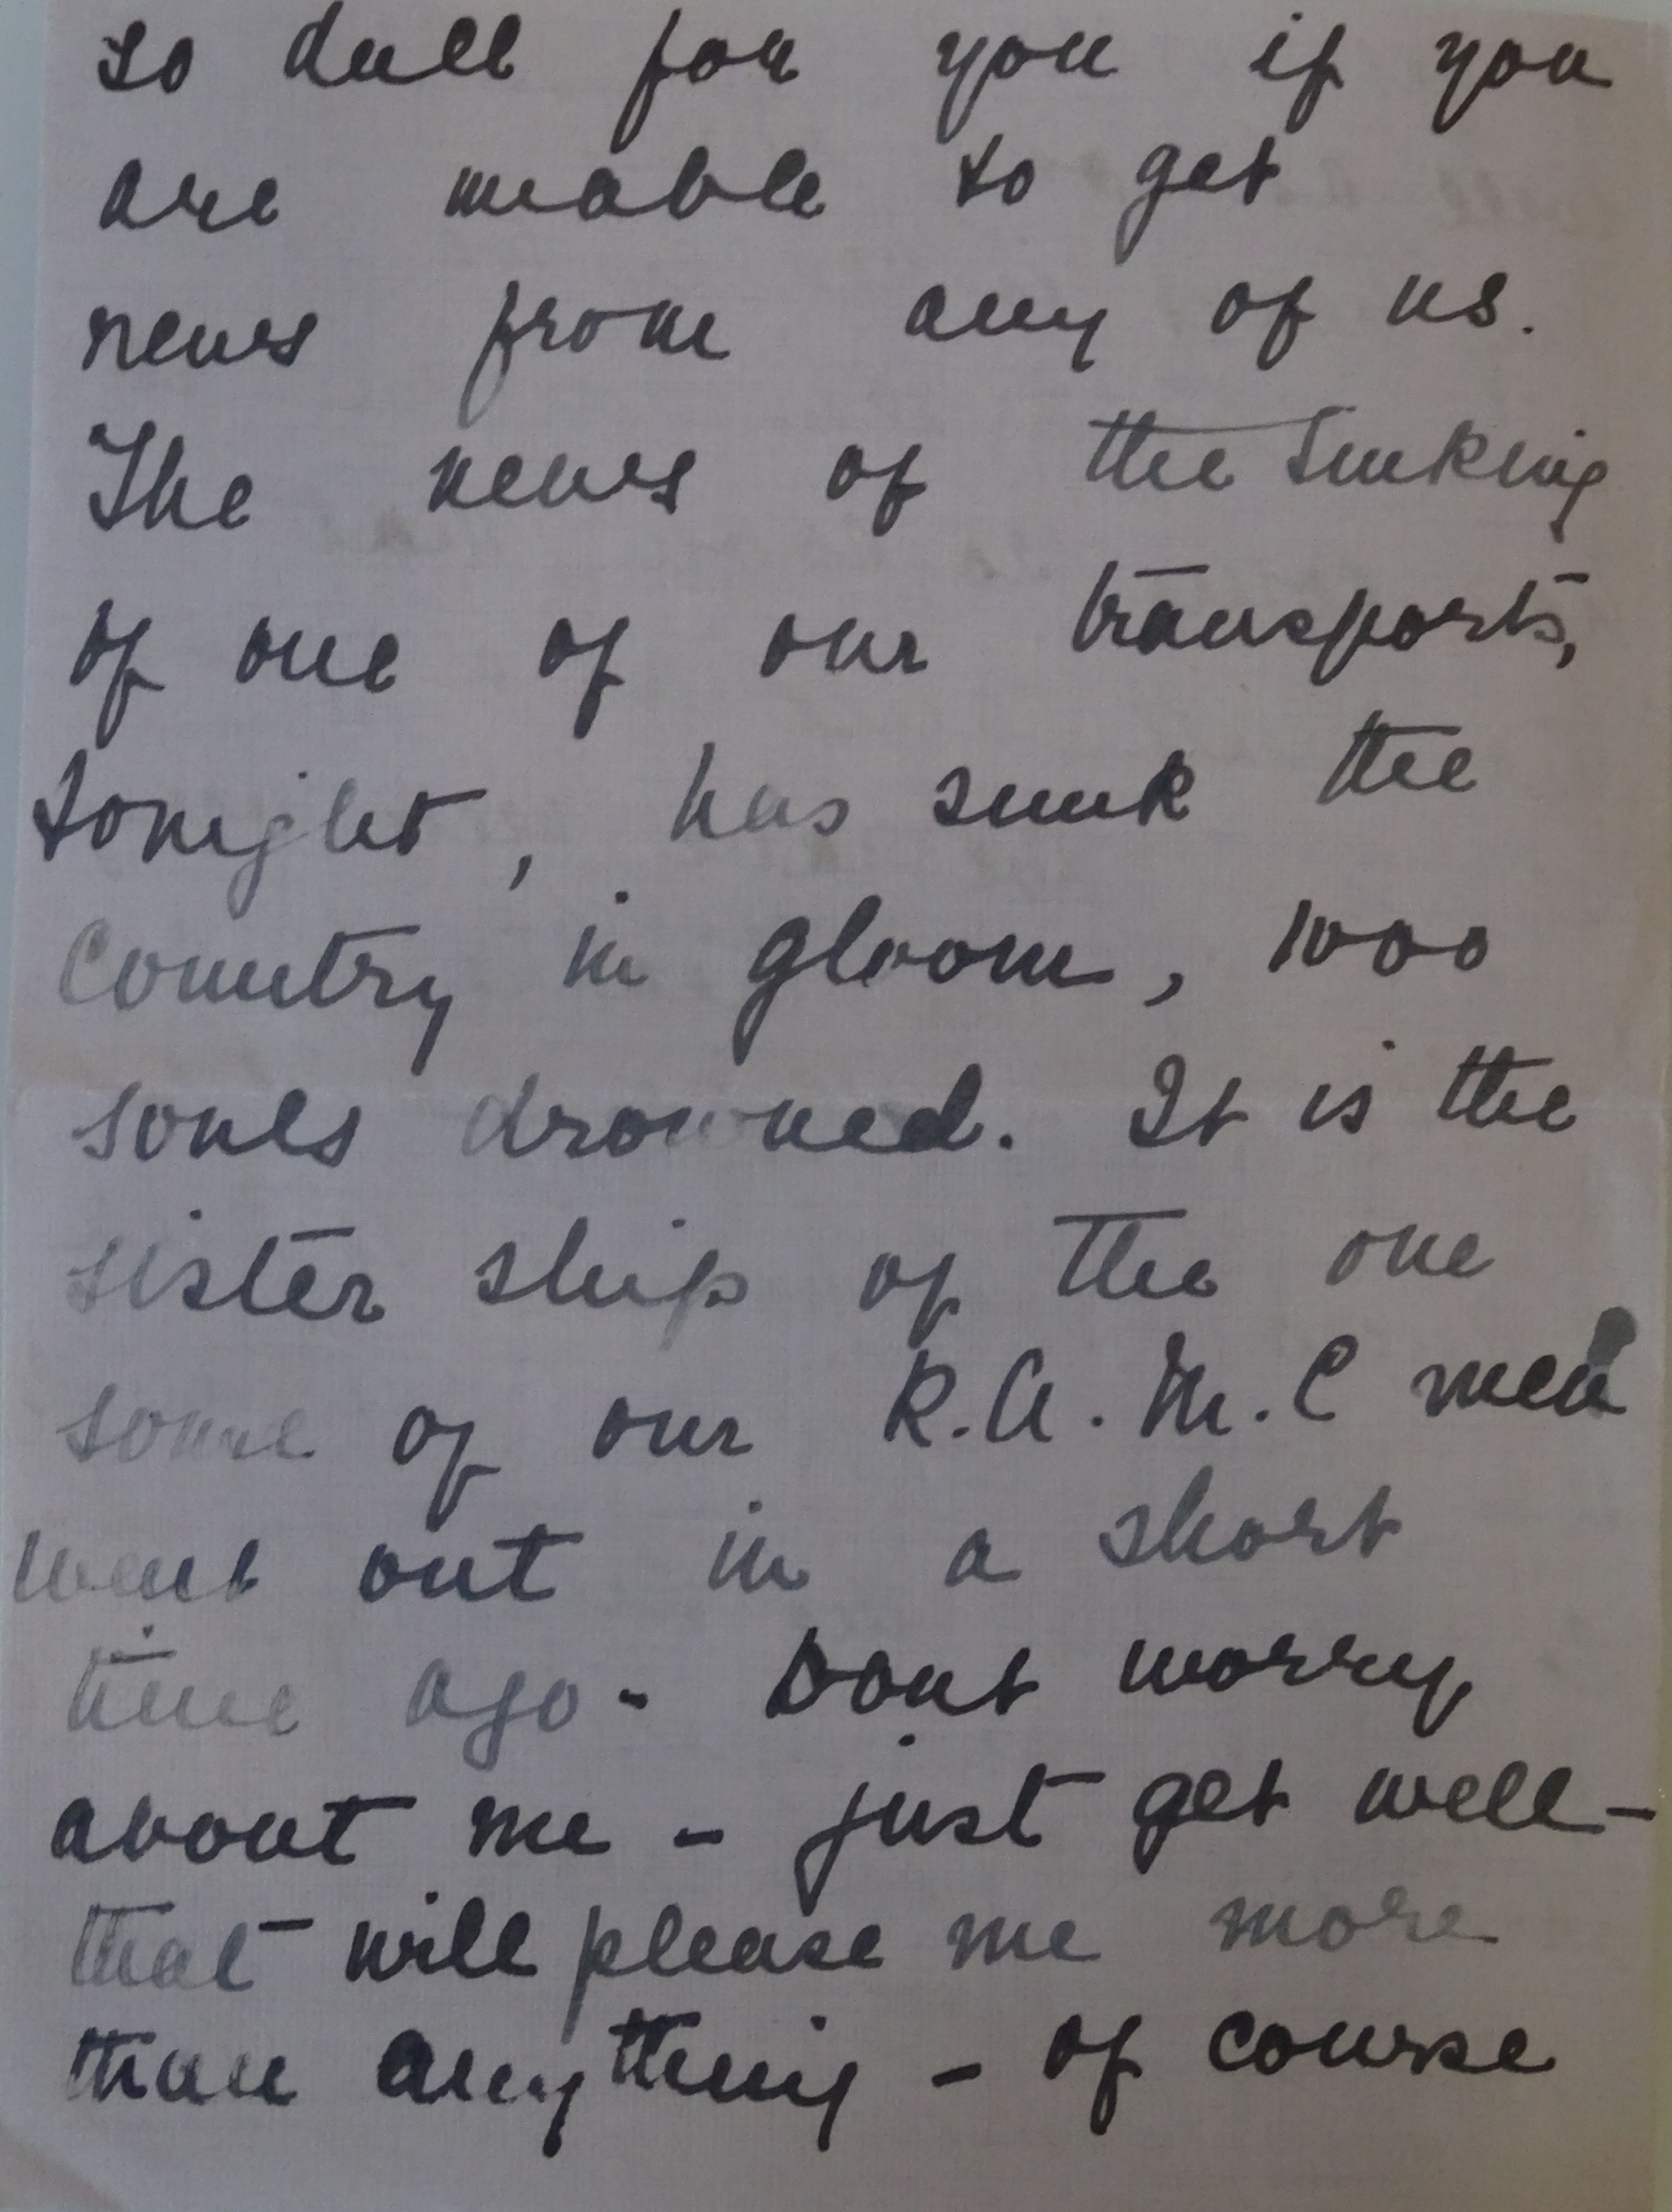 so dull for you if you
are unable to get
news from any of us.
The news of the sinking
of one of our transports,
tonight, has sunk the
Country in gloom, 1000
souls drowned. It is the
sister ship of the one
some of our R.A.M.C men
went out in a short
time ago - Dont worry
about me - just get well -
that will please me more
than anything - of course